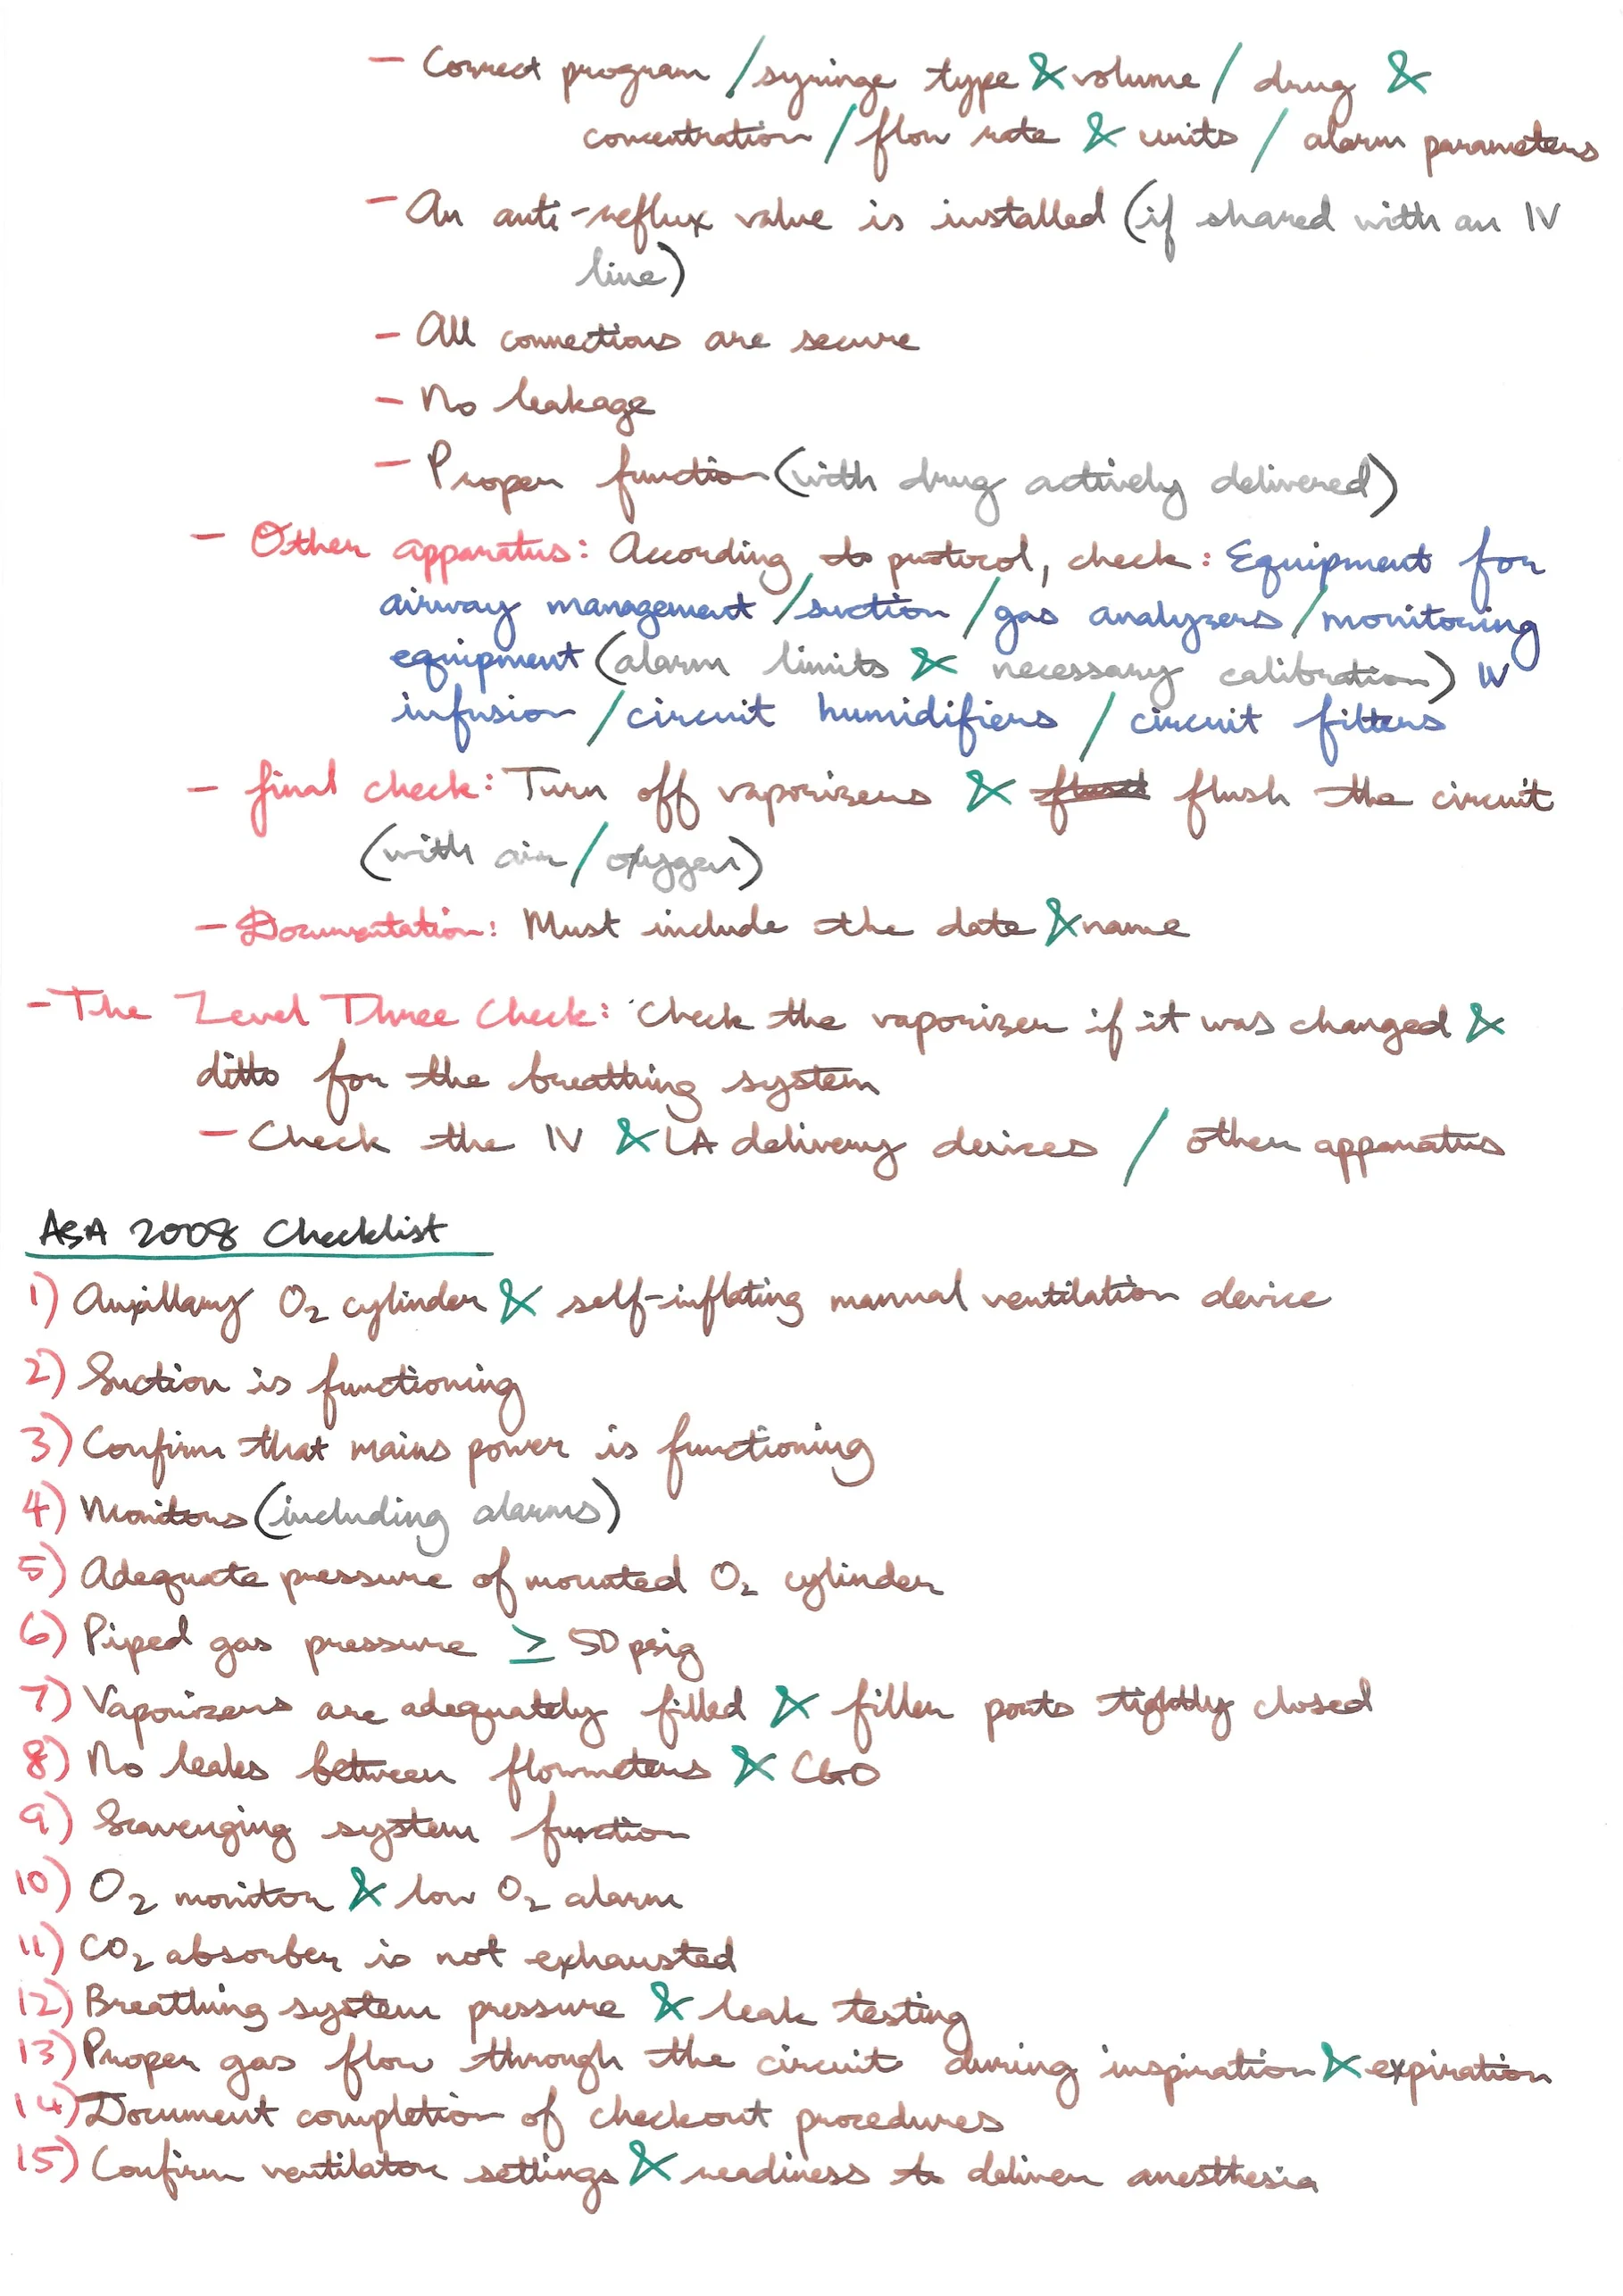 - Correct program / syringe type & volume / drug &
concentration / flow rate & units / alarm parameters
- An anti-reflux value is installed (if shared with an IV
line)
- All connections are secure
- No leakage
- Proper function (with drug actively delivered)
- Other apparatus: According to protocol, check: Equipment for
airway management / suction / gas analyzers / monitoring
equipment (alarm limits & necessary calibration) IV
infusion / circuit humidifiers / circuit filters
- final check: Turn off vaporizers & flush the circuit
(with air / oxygen)
- Documentation: Must include the date & name
- The Level Three Check: Check the vaporizer if it was changed &
ditto for the breathing system
- Check the IV & LA delivery devices / other apparatus
ASA 2008 Checklist
1) Auxillary O₂ cylinder & self-inflating manual ventilation device
2) Suction is functioning
3) Confirm that mains power is functioning
4) Monitors (including alarms)
5) Adequate pressure of mounted O₂ cylinder
6) Piped gas pressure ≥ 50 psig
7) Vaporizers are adequately filled & filler ports tightly closed
8) No leaks between flowmeters & CGO
9) Scavenging system function
10) O₂ monitor & low O₂ alarm
11) CO₂ absorber is not exhausted
12) Breathing system pressure & leak testing
13) Proper gas flow through the circuit during inspiration & expiration
14) Document completion of checkout procedures
15) Confirm ventilator settings & readiness to deliver anesthesia